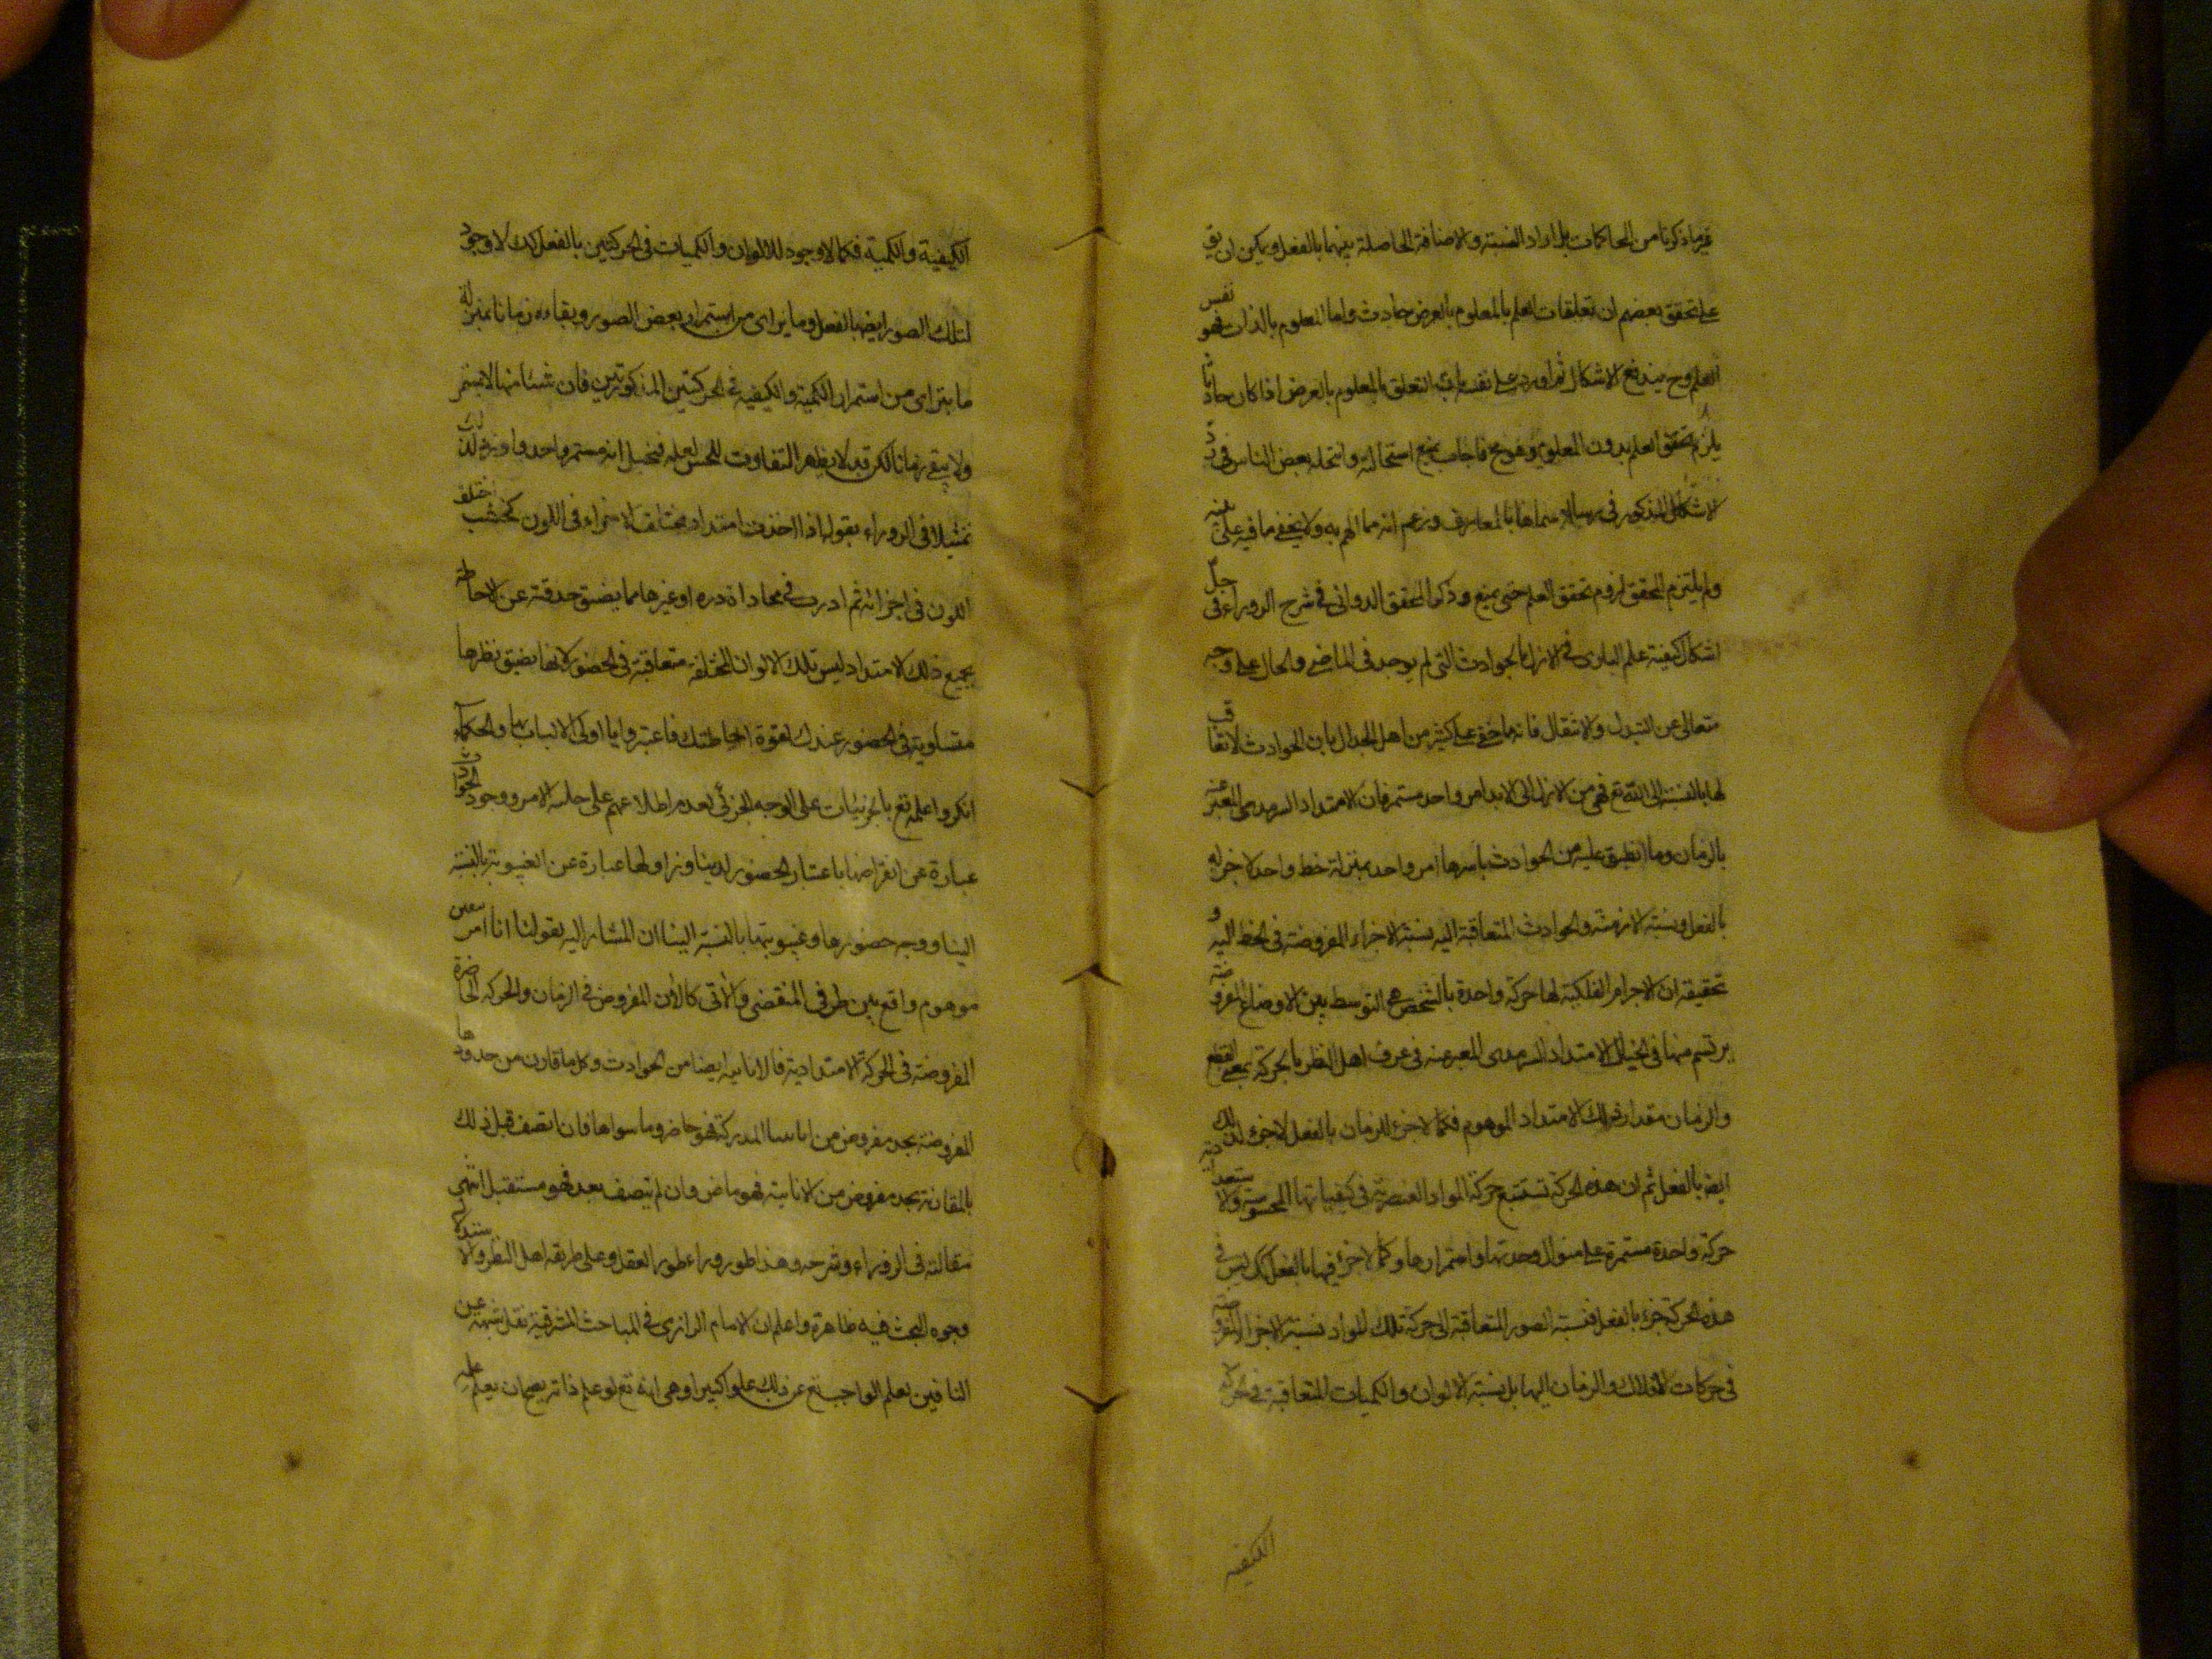 غير ما ذكرنا من المحاكمات بل اراد النسبة والاضافة الحاصلة بينهما بالفعل ويمكن ان يق
على تحقق بعضهم ان تعلقات العلم بالمعلوم بالعرض حادث واما المعلوم بالذات فهو نفس
العلم وح يندفع الاشكال ثم اورد على نفسه ان التعلق بالمعلوم بالعرض اذا كان حادثا
يلزم تحقق العلم بدون المعلوم وهو مح فاجاب بمنع استحالته وانتحله بعض الناس في
الاشكال المذكور في رسالة سماها بالمعارف وزعم انه مما الهم به ولا يخفى ما فيه على
ولم يلتزم المحقق لزوم تحقق العلم حتى يمنع وذكر المحقق الدواني في شرح الزوراء في حل
اشكال كيفية علم الباري في الازل بالحوادث التي لم يوجد في الماضي والحال على وجه
متعالى عن التبدل والانتقال فانه ما خفي على كثير من اهل الجدال بان الحوادث لا تعاقب
لها بالنسبة الى الله تع فهي من الازل الى الابد امر واحد مستمر فان الامتداد السرمدي المعبر عنه
بالزمان وما انطبق عليه من الحوادث باسرها امر واحد بمنزلة خط واحد لا جزء له
بالفعل ونسبة الازمنة والحوادث المتعاقبة اليه نسبة الاجزاء المفروضة في الخط اليه و
تحقيقه ان الاجرام الفلكية لها حركة واحدة بالشخص هي التوسط بين الاوضاع المفروضة
يرتسم منها في الخيال الامتداد السرمدي المعبر عنه في عرف اهل النظر بالحركة بمعنى القطع
والزمان مقدار ذلك الامتداد الموهوم فكما لا جزء للزمان بالفعل لا جزء لذلك
ايض بالفعل ثم ان هذه الحركة تستتبع حركة المواد العنصرية في كيفياتها المحسوسة والاستعدادية
حركة واحدة مستمرة على منوال وحدتها واستمرارها وكما لا جزء فيها بالفعل كك ليس في
هذه الحركة جزء بالفعل فنسبة الصور المتعاقبة الى حركة تلك المواد نسبة الاجزاء المفروضة
في حركات الافلاك والزمان اليها بل نسبة الالوان والكميات المتعاقبة في الحركة
الكيفية
الكيفية والكمية فكما لا وجود للالوان والكميات في الحركتين بالفعل كك لا وجود
لتلك الصور ايضا بالفعل وما يتراى من استمرار بعض الصور وبقاءه زمانا بمنزلة
ما يتراى من استمرار الكمية والكيفية في الحركتين المذكورتين فان شيئا منها لا يستمر
ولا يبقى زمانا لكن قد لا يظهر التفاوت للحس فيخيل انه مستمر واحد واورد لذلك
تمثيلا في الزوراء بقوله اذا اخذت امتدادا مختلف الاجزاء في اللون كخشب اختلف
اللون في اجزائه ثم ادرت في محاذاة ذره او غيرها مما يضيق حدقته عن الاحاطة
بجميع ذلك الامتداد ليس تلك الالوان المختلفة متعاقبة في الحضور لانها يضيق نظرها
متساوية في الحضور عندك لقوة احاطتك فاعتبروا يا اولى الالباب والحكماء
انكروا علمه تع بالجزئيات على الوجه الجزئي لعدم اطلاعهم على جلية الامر ووجود الحوادث
عبارة عن انقراضها باعتبار الحضور لدينا وزوالها عبارة عن الغيبوبة بالنسبة
الينا ووجه حضورها وغيبوبتها بالنسبة الينا ان المشار اليه بقولنا انا امر معين
موهوم واقع بين طرفي المنقضي والآتي كالآن المفروض في الزمان والحركة الحاضرة
المفروضة في الحركة الامتدادية فالانانية ايضا من الحوادث وكل ما قارن من حدودها
المفروضة بحد مفروض من المدركة فهو حاضر وما سواها فان اتصف قبل ذلك
بالمقارنة بحد مفروض من الانانية فهو ماض وان لم يتصف بعد فهو مستقبل انتهى
مقالته في الزوراء وشرحه وهذا طور وراء طور العقل وعلى طريقة اهل النظر والاستدلال
وجوه البحث فيه ظاهرة واعلم ان الامام الرازي في المباحث المشرقية نقل شبهة عن
النافين لعلم الواجب تع عن ذلك علوا كبيرا وهي انه تع لو علم ذاته يصح ان يعلم علمه